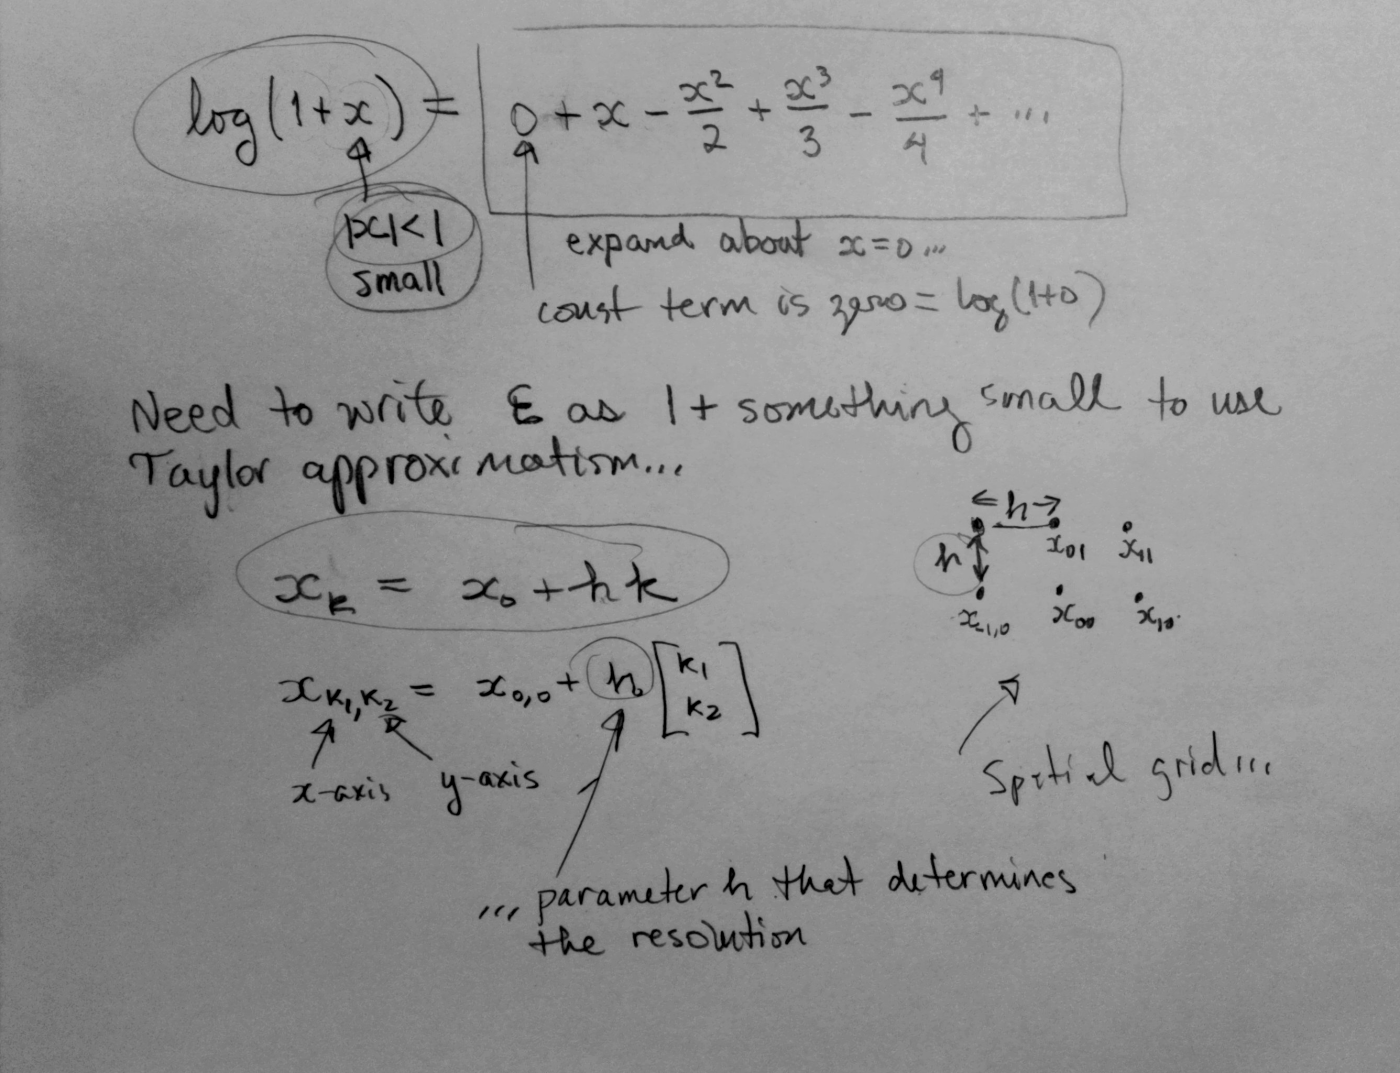 log(1+x) = 0 + x - x²/2 + x³/3 - x⁴/4 + ...
|x|<1
small
expand about x=0...
const term is zero = log(1+0)
Need to write ε as 1 + something small to use
Taylor approximation...
x_k = x_0 + h k
x_{k_1,k_2} = x_{0,0} + h [k_1 k_2]
x-axis
y-axis
... parameter h that determines
the resolution
h
h
x_{01} x_{11}
x_{-1,0} x_{00} x_{10}
Spatial grid...